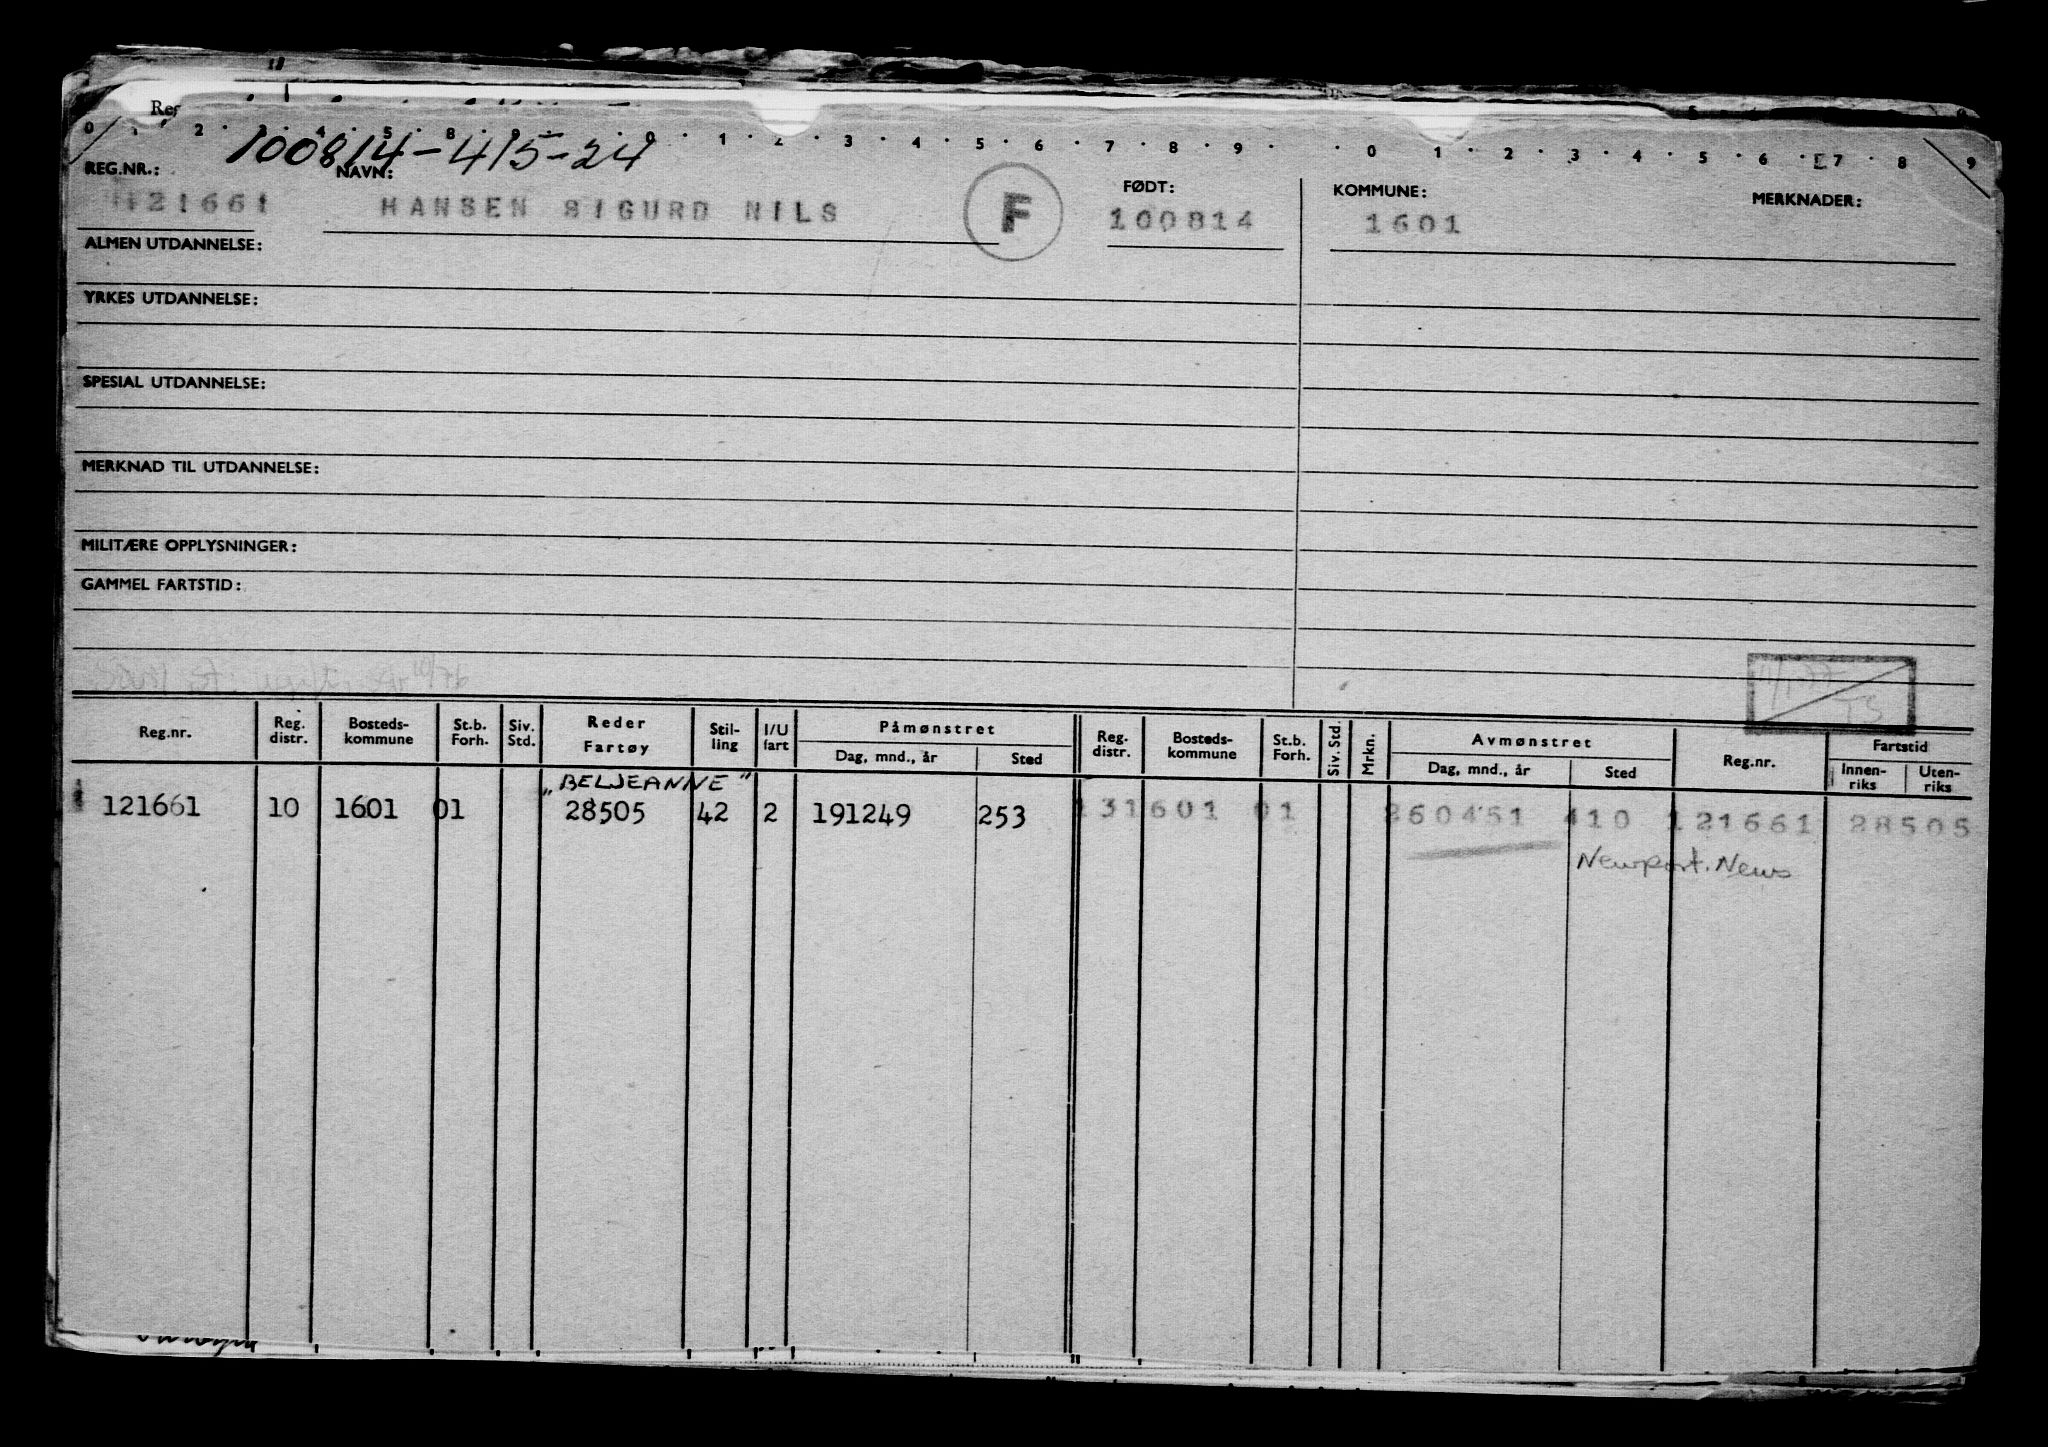 Reg
0 1 2 3 4 5 8 9 0 1 2 3 4 5 6 7 8 9 0 1 2 3 4 5 6 7 8 9
100814-415-24
REG.NR.: NAVN: FØDT: KOMMUNE: MERKNADER:
121661 HANSEN SIGURD NILS F 100814 1601
ALMEN UTDANNELSE:
YRKES UTDANNELSE:
SPESIAL UTDANNELSE:
MERKNAD TIL UTDANNELSE:
MILITÆRE OPPLYSNINGER:
GAMMEL FARTSTID:
11/1-77
TS
Reg.nr. Reg. distr. Bosteds-kommune St.b. Forh. Siv. Std. Reder Fartøy Stil-ling I/U fart Påmønstret Dag, mnd., år Sted Reg. distr. Bosteds-kommune St.b. Forh. Siv. Std. Mrkn. Avmønstret Dag, mnd., år Sted Reg.nr. Fartstid Innen-riks Uten-riks
„BELJEANNE"
121661 10 1601 01 28505 42 2 191249 253 131601 01 260451 410 121661 28505
Newport. News